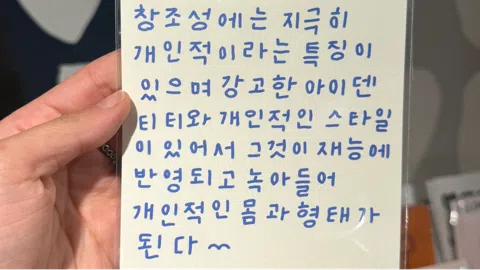 창조성에는 지극히
개인적이라는 특징이
있으며 강고한 아이덴
티티와 개인적인 스타일
이 있어서 그것이 재능에
반영되고 녹아들어
개인적인 몸과 형태가
된다~